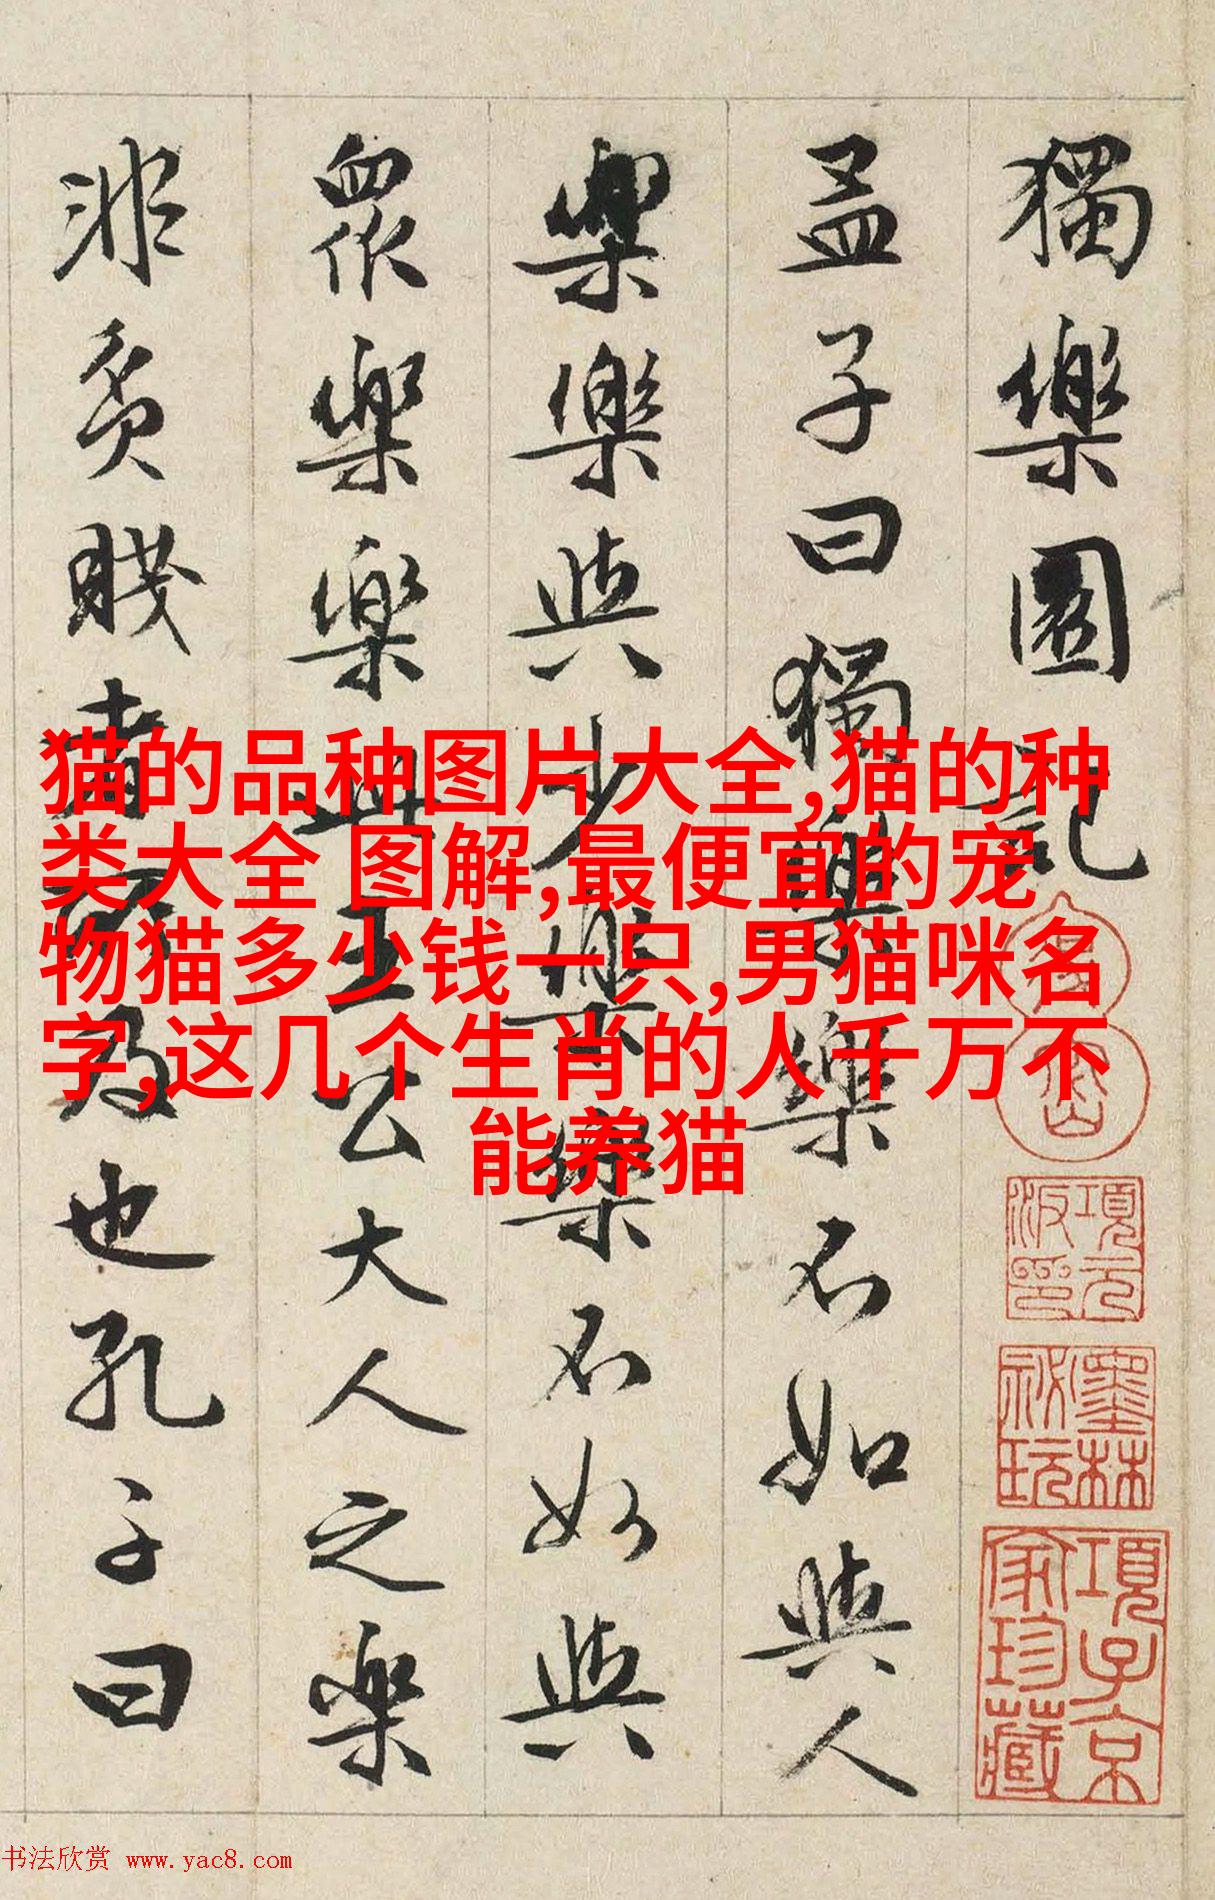 獨樂園記
孟子曰獨樂樂不如與人
樂樂與少樂樂不如與
眾樂樂此王公大人之樂
非貧賤者所及也孔子曰
猫的品种图片大全,猫的种
类大全 图解,最便宜的宠
物猫多少钱一只,男猫咪名
字,这几个生肖的人千万不
能养猫
項元汴印
墨林祕玩
項子京家珍藏
书法欣赏 www.yac8.com